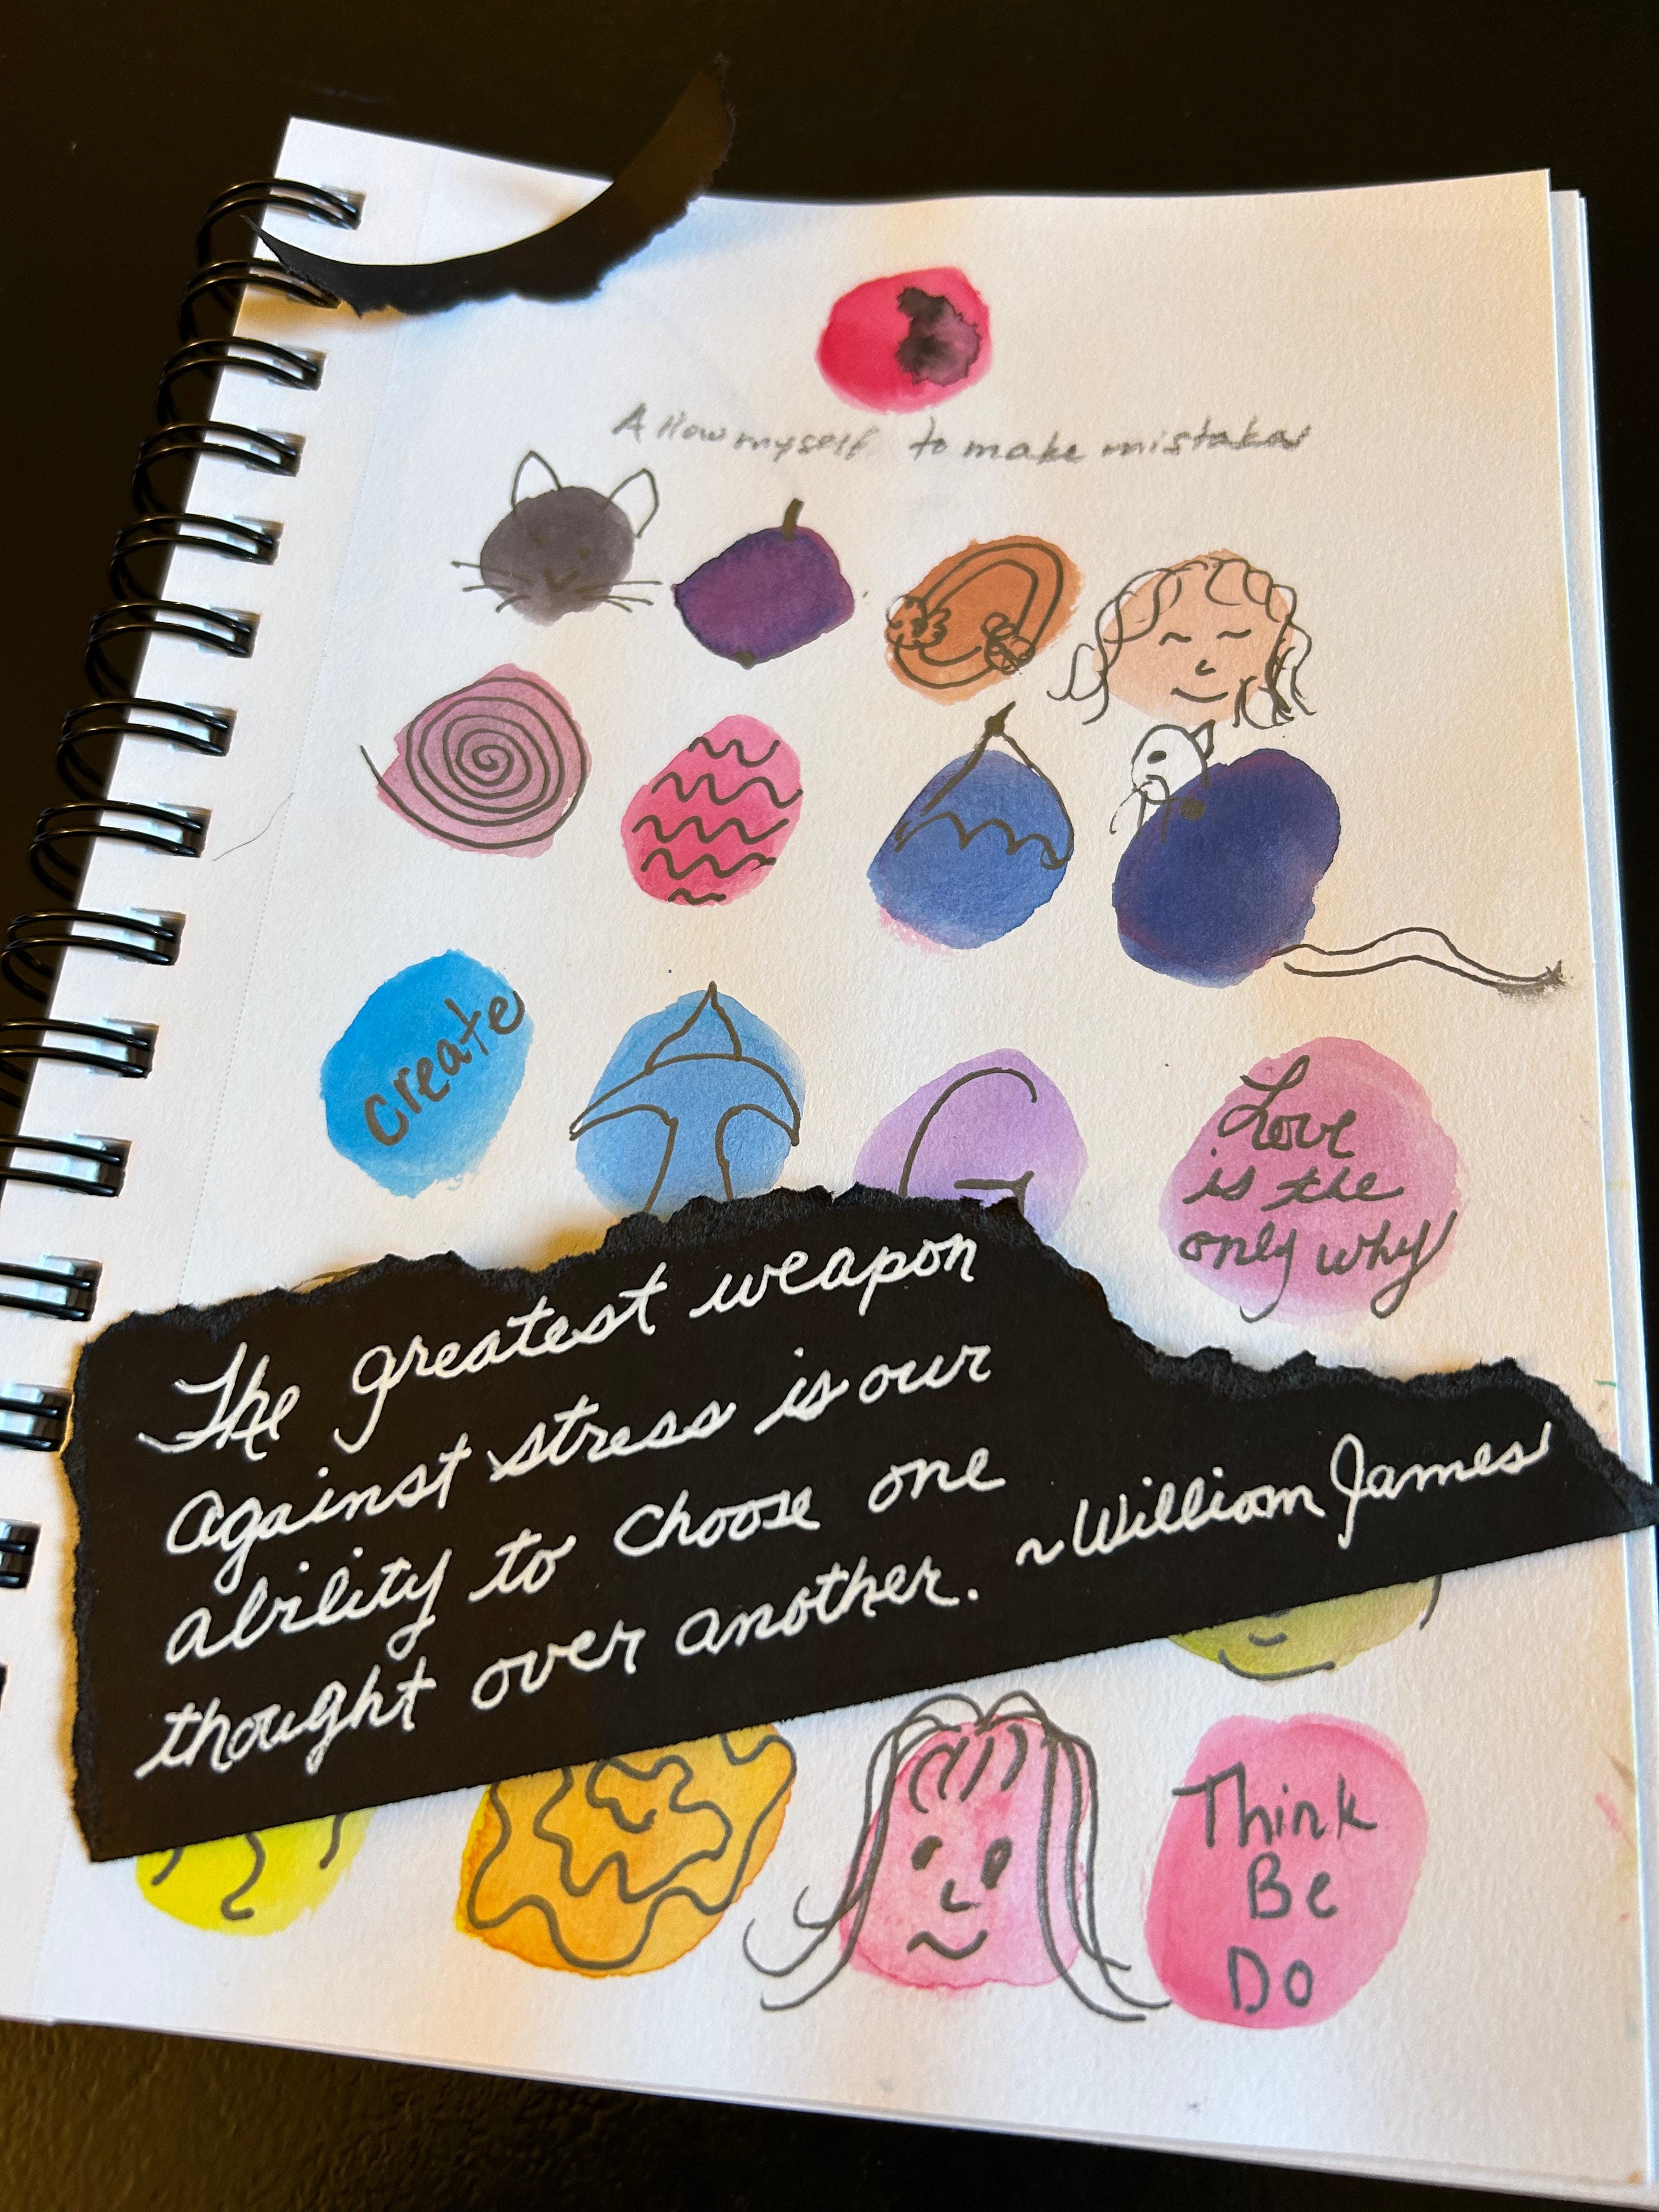 Allow myself to make mistakes
Create
Love
is the
only why
The greatest weapon
against stress is our
ability to choose one
thought over another. ~William James
Think
Be
Do